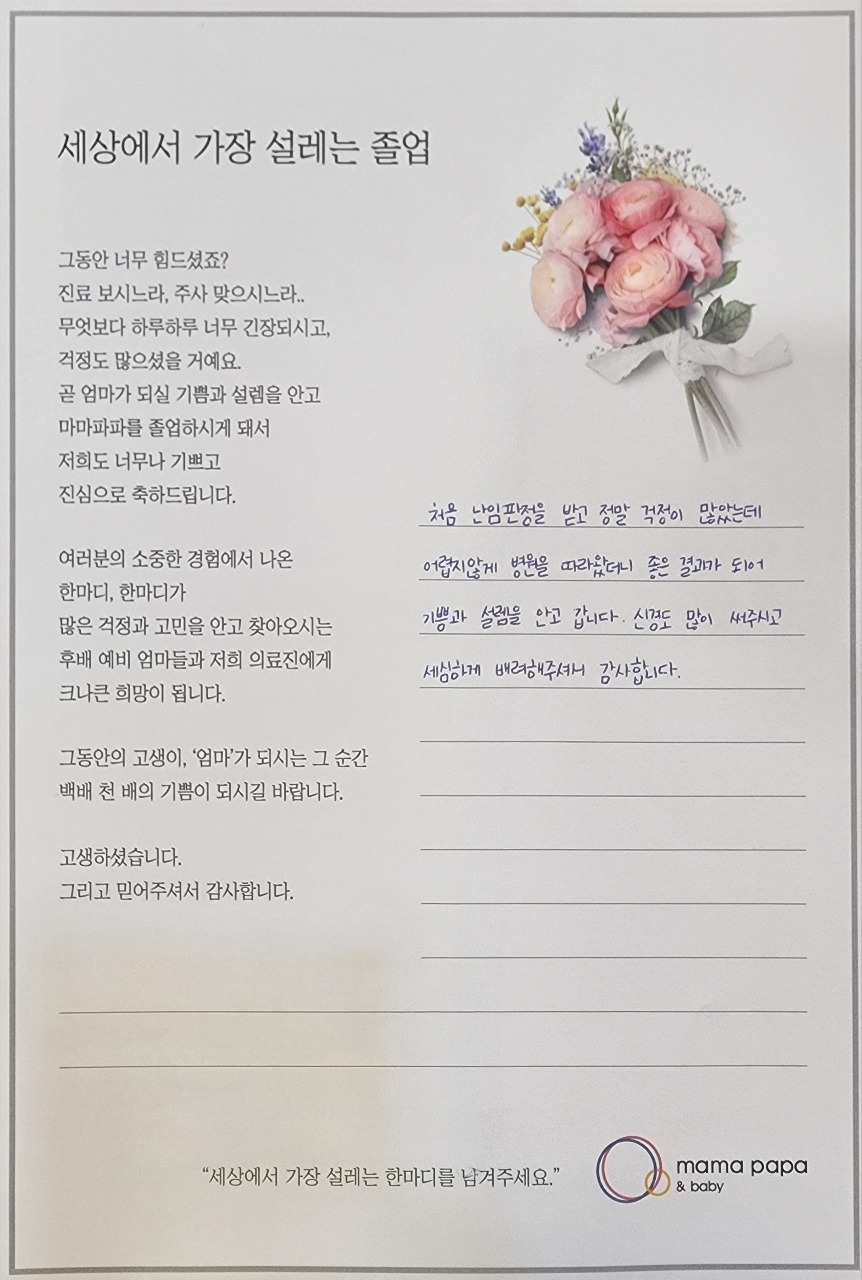 세상에서 가장 설레는 졸업
그동안 너무 힘드셨죠?
진료 보시느라, 주사 맞으시느라..
무엇보다 하루하루 너무 긴장되시고,
걱정도 많으셨을 거예요.
곧 엄마가 되실 기쁨과 설렘을 안고
마마파파를 졸업하시게 돼서
저희도 너무나 기쁘고
진심으로 축하드립니다.
여러분의 소중한 경험에서 나온
한마디, 한마디가
많은 걱정과 고민을 안고 찾아오시는
후배 예비 엄마들과 저희 의료진에게
크나큰 희망이 됩니다.
그동안의 고생이, ‘엄마’가 되시는 그 순간
백배 천 배의 기쁨이 되시길 바랍니다.
고생하셨습니다.
그리고 믿어주셔서 감사합니다.
처음 난임판정을 받고 정말 걱정이 많았는데
어렵지않게 병원을 따라왔더니 좋은 결과가 되어
기쁨과 설렘을 안고 갑니다. 신경도 많이 써주시고
세심하게 배려해주셔서 감사합니다.
“세상에서 가장 설레는 한마디를 남겨주세요.”
mama papa
& baby